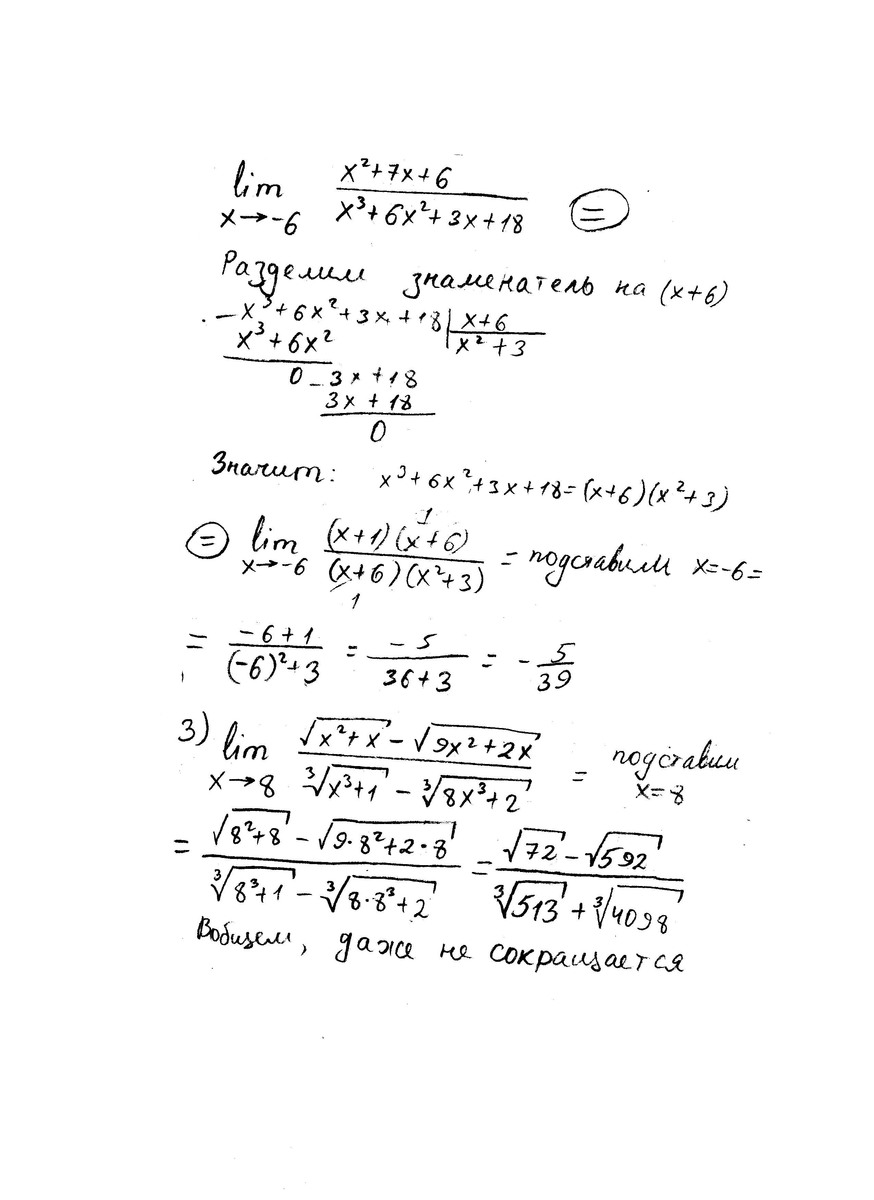 lim x→-6 (x²+7x+6)/(x³+6x²+3x+18) =
Разделим знаменатель на (x+6)
- x³+6x²+3x+18 | x+6
x³+6x² | x²+3
0 - 3x+18
3x+18
0
Значит: x³+6x²+3x+18=(x+6)(x²+3)
= lim x→-6 (x+1)(x+6)/(x+6)(x²+3) = подставим x=-6 =
1
1
= (-6+1)/((-6)²+3) = -5/(36+3) = -5/39
3) lim x→8 (√(x²+x) - √(9x²+2x))/(∛(x³+1) - ∛(8x³+2)) = подставим x=8
= (√(8²+8) - √(9·8²+2·8))/(∛(8³+1) - ∛(8·8³+2)) = (√72 - √592)/(∛513 + ∛4098)
Вобщем, даже не сокращается